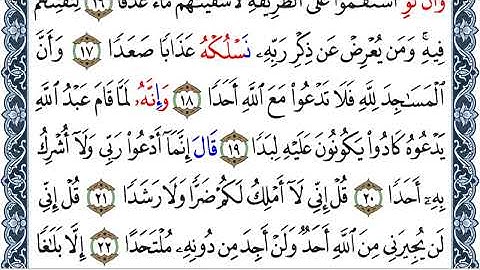 وَأَن لَّوِ ٱسْتَقَٰمُوا۟ عَلَى ٱلطَّرِيقَةِ لَأَسْقَيْنَٰهُم مَّآءً غَدَقًا ١٦ لِّنَفْتِنَهُمْ
فِيهِ ۚ وَمَن يُعْرِضْ عَن ذِكْرِ رَبِّهِۦ نَسْلُكْهُ عَذَابًا صَعَدًا ١٧ وَأَنَّ
ٱلْمَسَٰجِدَ لِلَّهِ فَلَا تَدْعُوا۟ مَعَ ٱللَّهِ أَحَدًا ١٨ وَإِنَّهُۥ لَمَّا قَامَ عَبْدُ ٱللَّهِ
يَدْعُوهُ كَادُوا۟ يَكُونُونَ عَلَيْهِ لِبَدًا ١٩ قَالَ إِنَّمَآ أَدْعُوا۟ رَبِّى وَلَآ أُشْرِكُ
بِهِۦٓ أَحَدًا ٢٠ قُلْ إِنِّى لَآ أَمْلِكُ لَكُمْ ضَرًّا وَلَا رَشَدًا ٢١ قُلْ إِنِّى
لَن يُجِيرَنِى مِنَ ٱللَّهِ أَحَدٌ وَلَنْ أَجِدَ مِن دُونِهِۦ مُلْتَحَدًا ٢٢ إِلَّا بَلَٰغًا